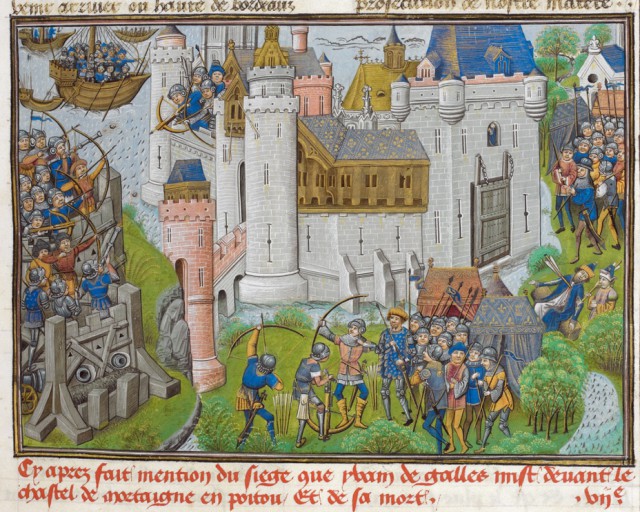 venir arriver ou havre de bordeaux
prosecution de nostre matere
Cy aprez fait mention du siege que yvain de galles mist devant le
chastel de mortaigne en poitou / Et de sa mort · vijc